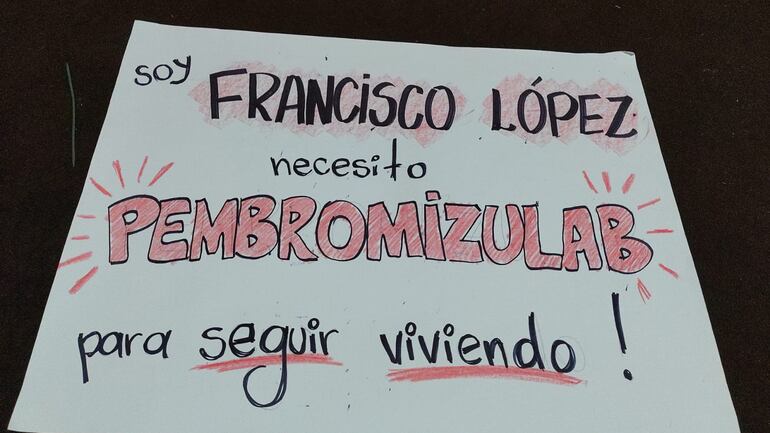 soy FRANCISCO LÓPEZ
necesito
PEMBROMIZULAB
para seguir viviendo !